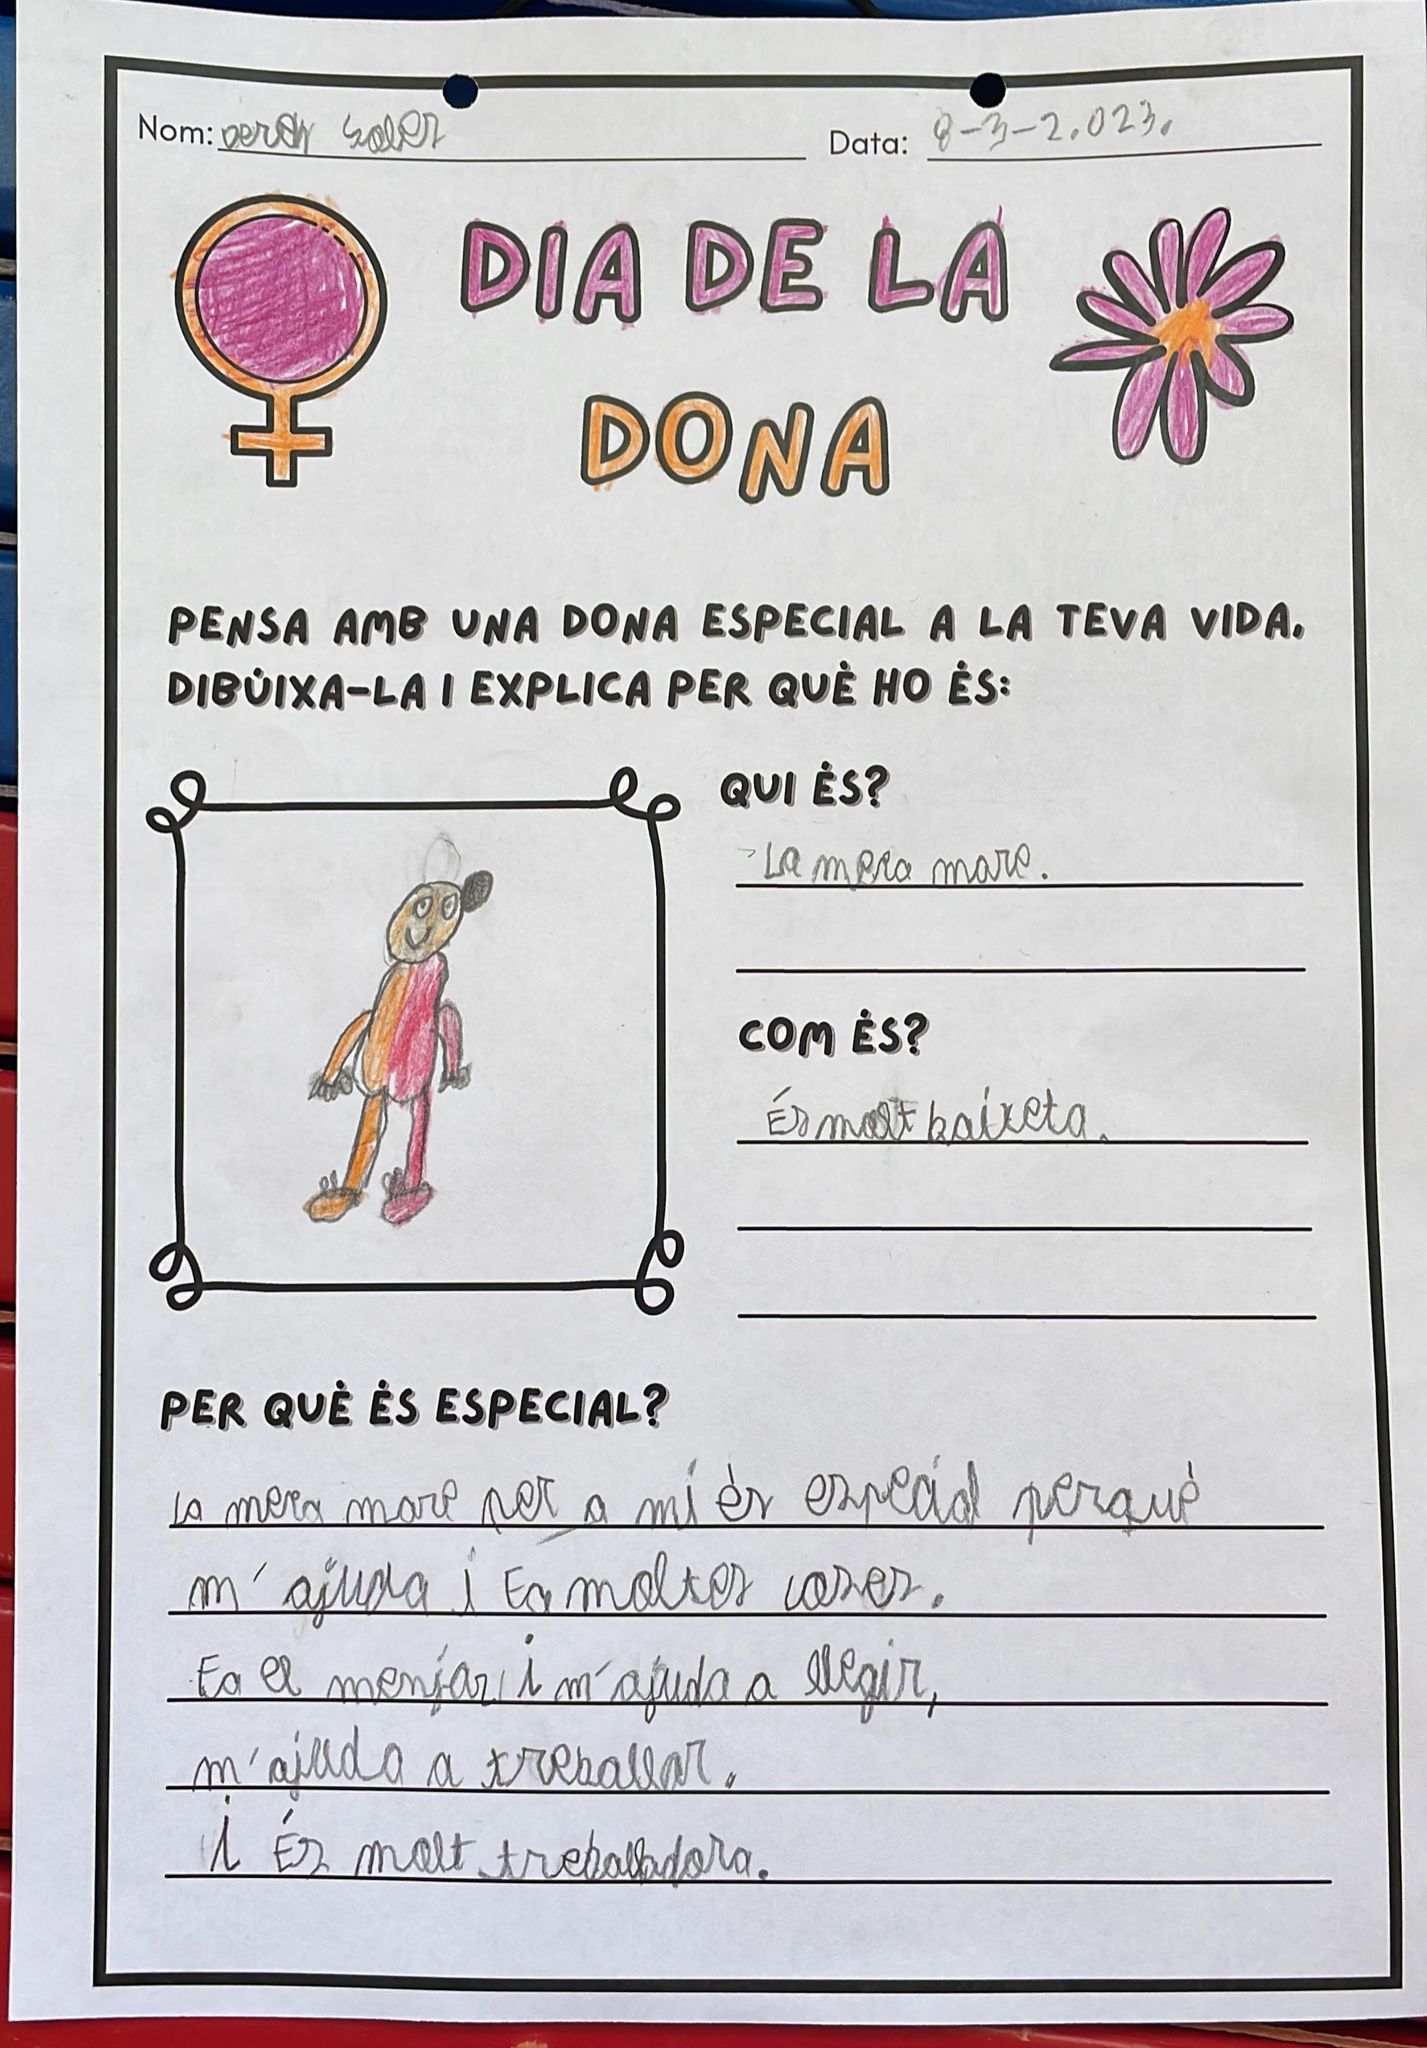 Nom: Soler
Data: 8-3-2.023.
DIA DE LA
DONA
PENSA AMB UNA DONA ESPECIAL A LA TEVA VIDA.
DIBÚIXA-LA I EXPLICA PER QUÈ HO ÉS:
QUI ÉS?
La mera mare.
COM ÉS?
És molt baixeta.
PER QUÈ ÉS ESPECIAL?
La mera mare per a mi és especial perquè
m'ajuda i Fa moltes coses.
Fa el menjar i m'ajuda a llegir,
m'ajuda a treballar.
i És molt treballadora.